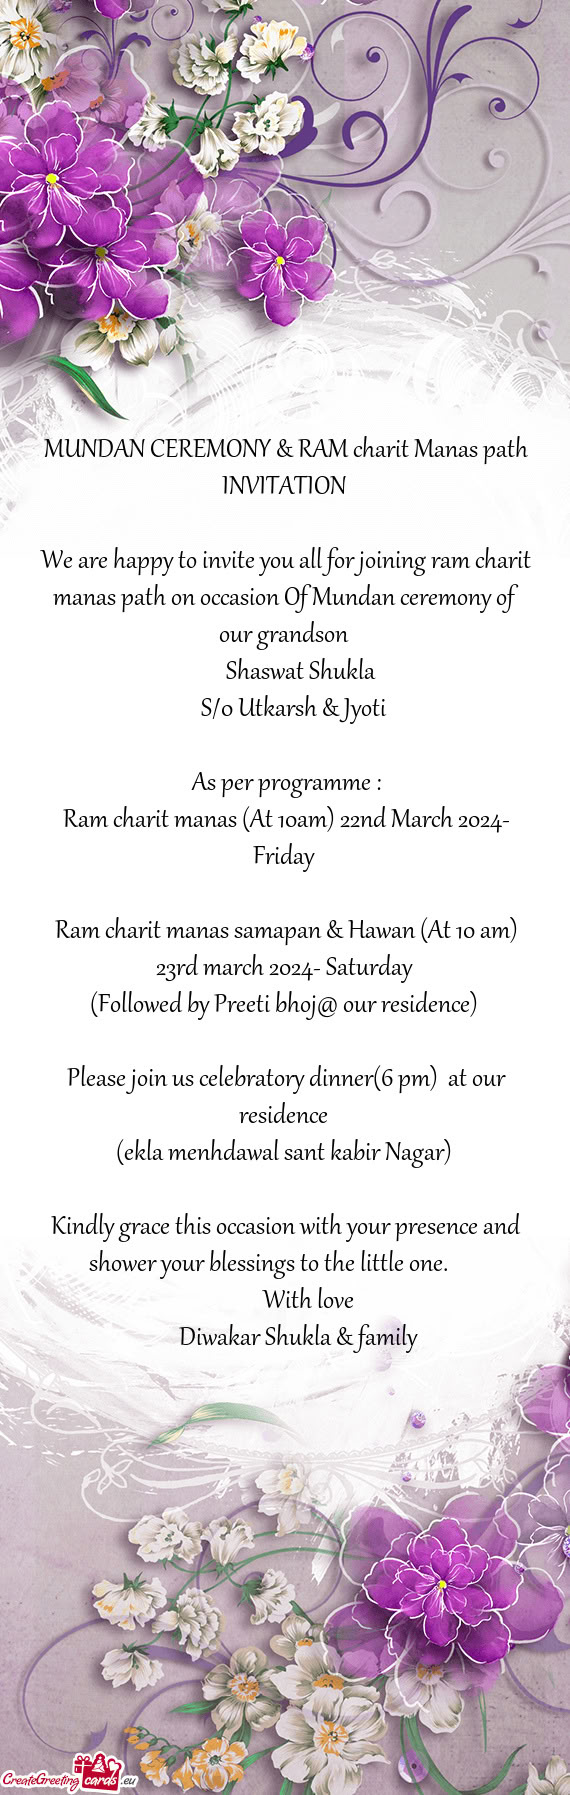 MUNDAN CEREMONY & RAM charit Manas path
INVITATION
We are happy to invite you all for joining ram charit
manas path on occasion Of Mundan ceremony of
our grandson
Shaswat Shukla
S/o Utkarsh & Jyoti
As per programme :
Ram charit manas (At 10am) 22nd March 2024-
Friday
Ram charit manas samapan & Hawan (At 10 am)
23rd march 2024- Saturday
(Followed by Preeti bhoj@ our residence)
Please join us celebratory dinner(6 pm) at our
residence
(ekla menhdawal sant kabir Nagar)
Kindly grace this occasion with your presence and
shower your blessings to the little one.
With love
Diwakar Shukla & family
CreateGreeting cards .eu